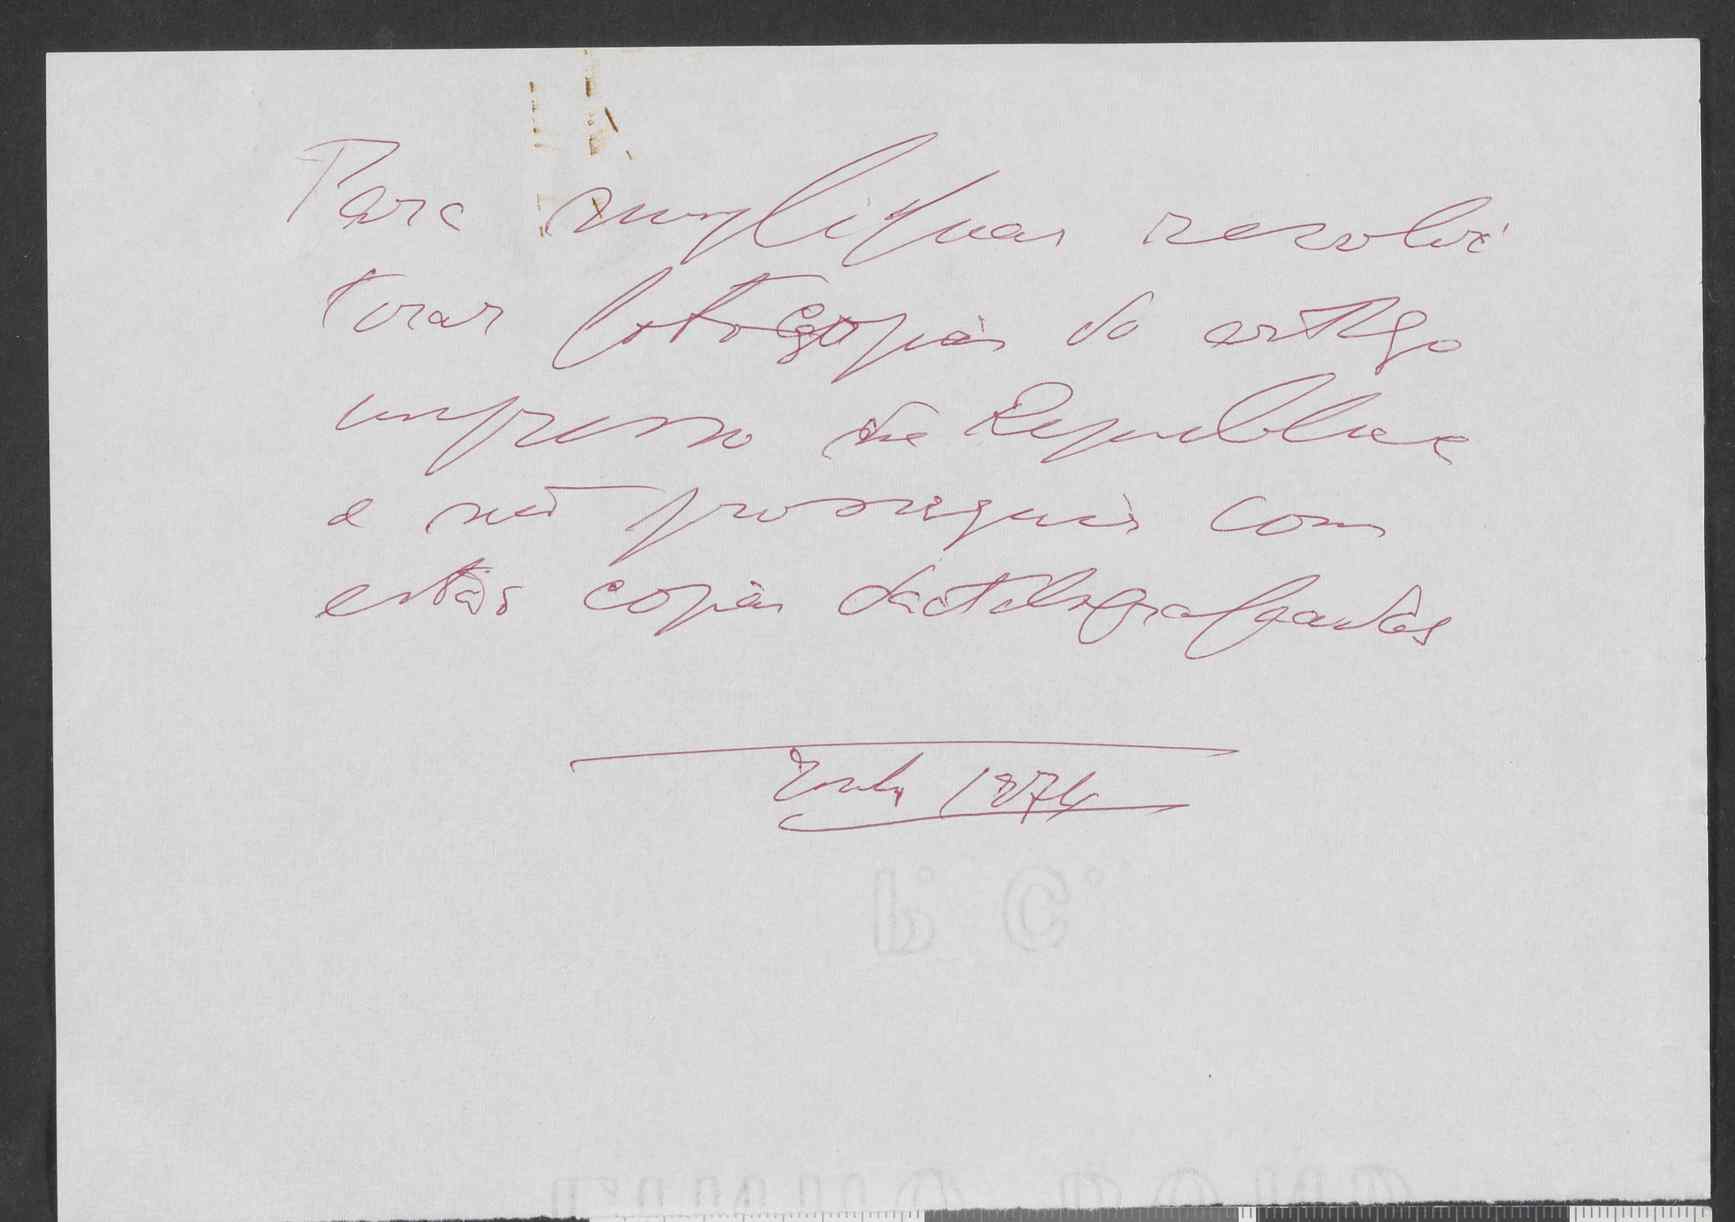 Para simplificar resolvi
tirar fotocópias do artigo
impresso da Republica
e não prosseguir com
estas copias dactilografadas
1974